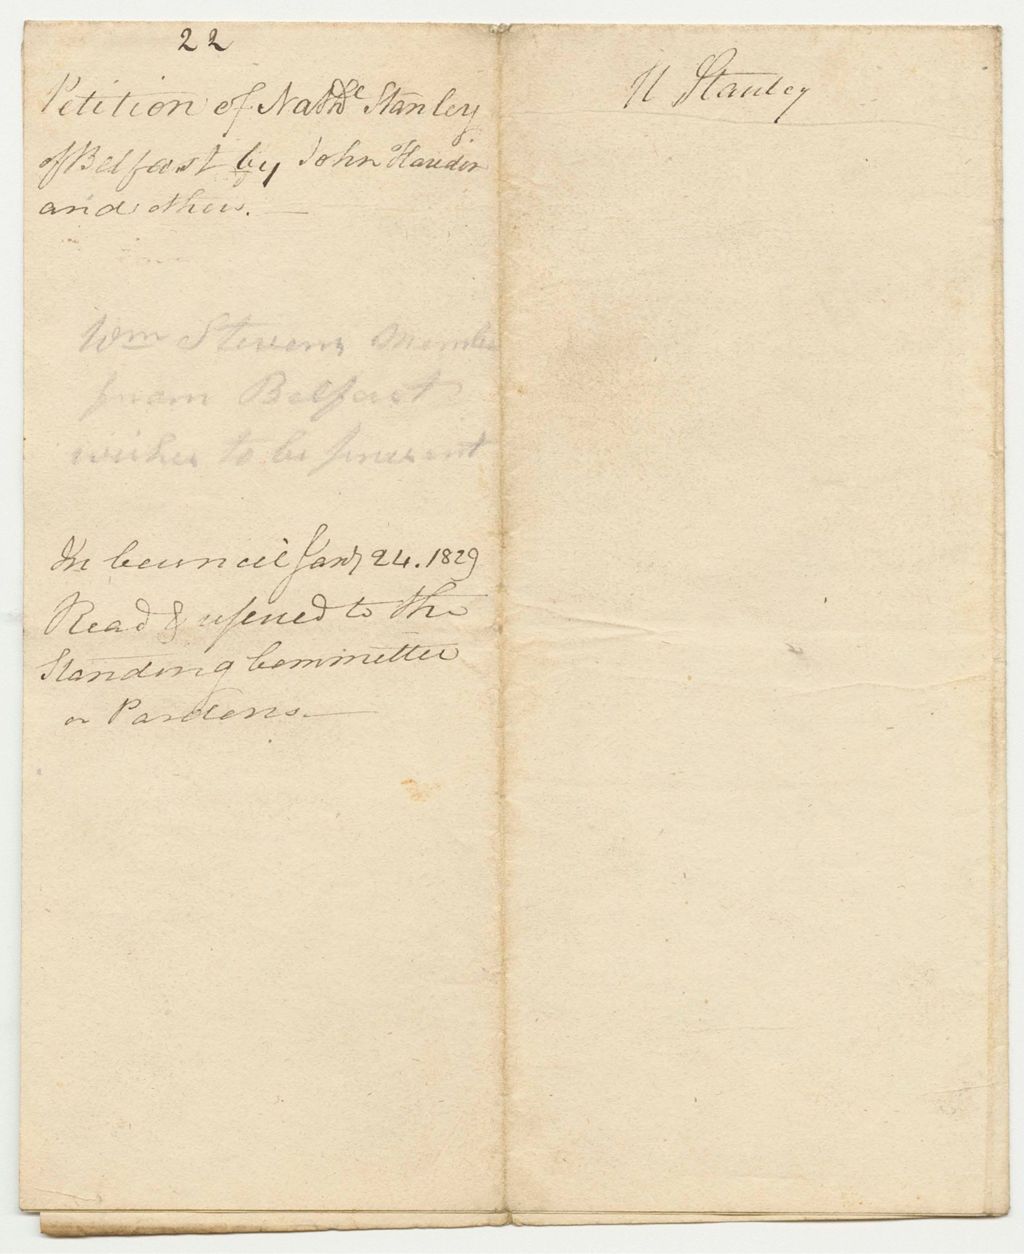 22
Petition of Nathl Stanley
of Belfast by John
and others. —
Wm Stevens Membe
from Belfast
wishes to be present
In Council Jany 24. 1829
Read & referred to the
Standing Committee
on Pardons. —
N Stanley